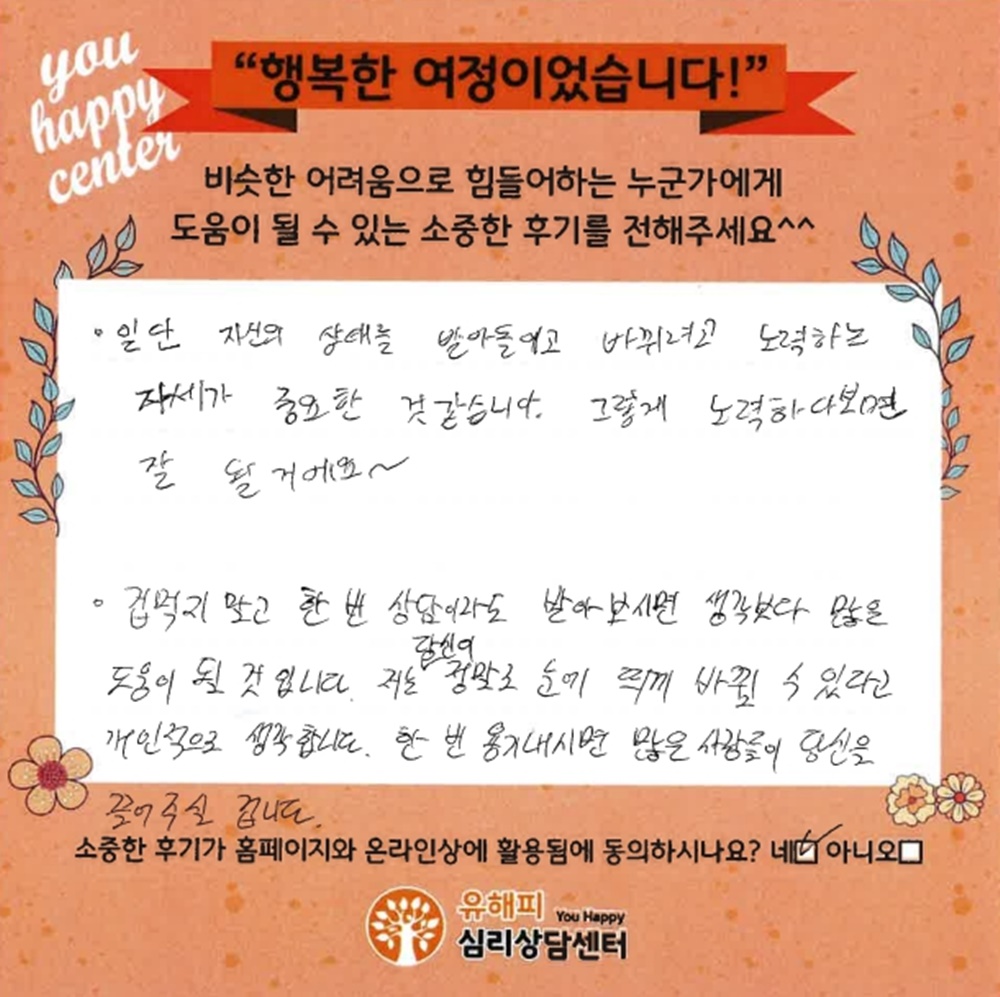 you
happy
center
“행복한 여정이었습니다!”
비슷한 어려움으로 힘들어하는 누군가에게
도움이 될 수 있는 소중한 후기를 전해주세요^^
• 일단 자신의 상태를 받아들이고 바뀌려고 노력하는
자세가 중요한 것같습니다. 그렇게 노력하다보면
잘 될 거에요~
• 겁먹지 말고 한 번 상담이라도 받아보시면 생각보다 많은
당신이
도움이 될 것입니다. 저는 정말로 눈에 띄게 바뀔 수 있다고
개인적으로 생각합니다. 한 번 용기내시면 많은 사람들이 당신을
끌어주실 겁니다.
소중한 후기가 홈페이지와 온라인상에 활용됨에 동의하시나요? 네☑ 아니오☐
유해피 You Happy
심리상담센터